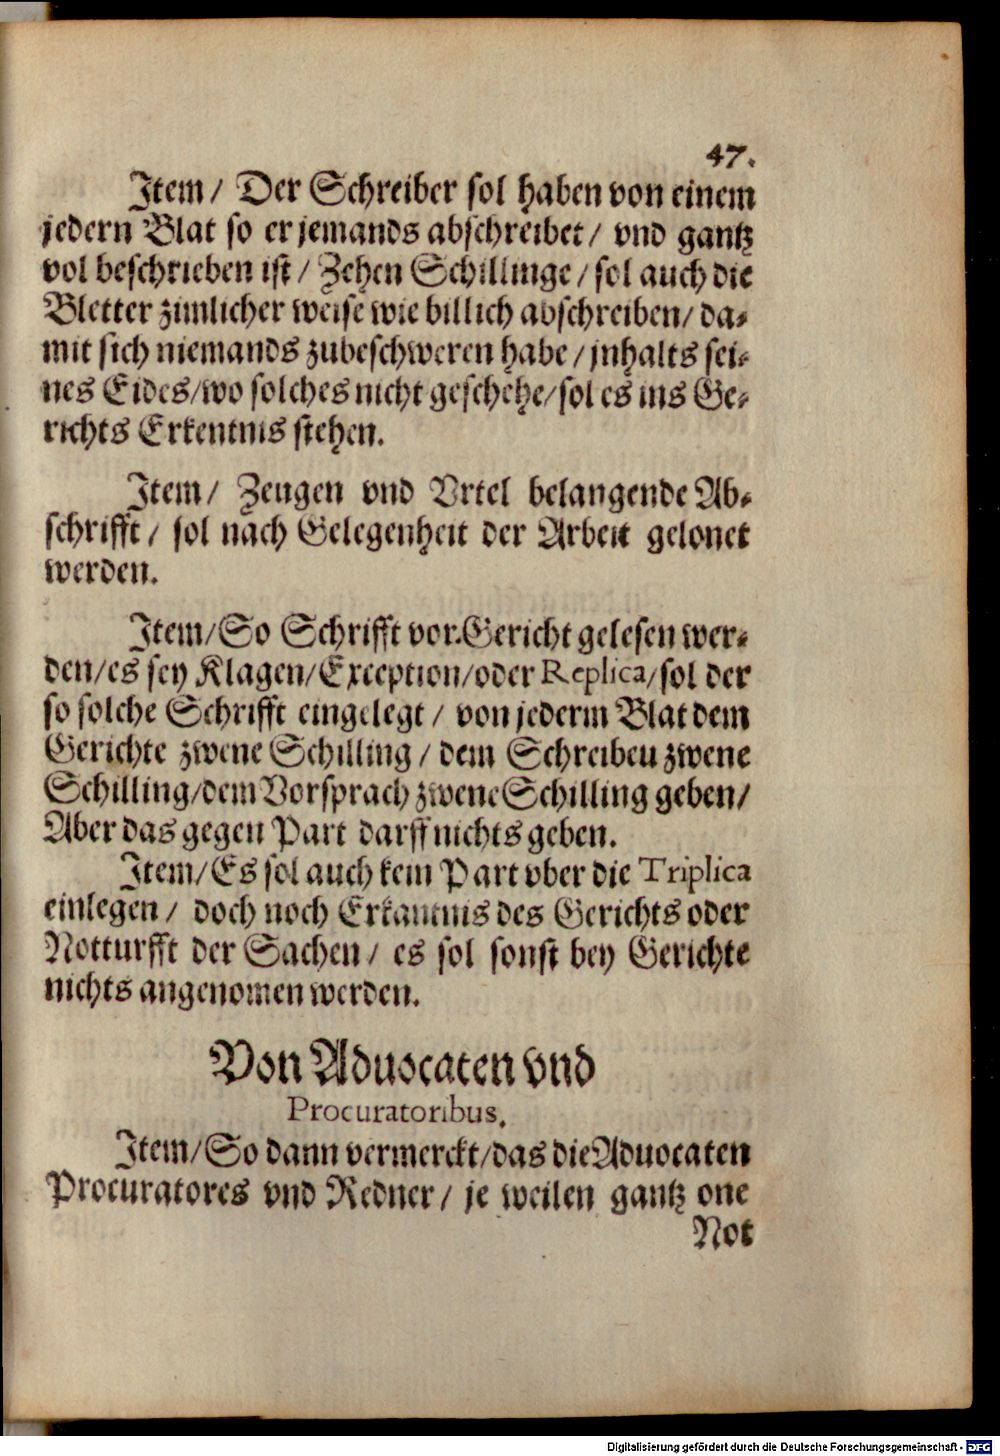 47.
Item/ Der Schreiber sol haben von einem
jedern Blat so er jemands abschreibet/ vnd gantz
vol beschrieben ist/ Zehen Schillinge/ sol auch die
Bletter zimlicher weise wie billich abschreiben/ da-
mit sich niemands zubeschweren habe/ jnhalts sei-
nes Eides/ wo solches nicht geschehe/ sol es ins Ge-
richts Erkentnis stehen.
Item/ Zeugen vnd Vrtel belangende Ab-
schrifft/ sol nach Gelegenheit der Arbeit gelonet
werden.
Item/ So Schrifft vor Gericht gelesen wer-
den/ es sey Klagen/ Exception/ oder Replica/ sol der
so solche Schrifft eingelegt/ von jederm Blat dem
Gerichte zwene Schilling/ dem Schreibeu zwene
Schilling/ dem Vorsprach zwene Schilling geben/
Aber das gegen Part darff nichts geben.
Item/ Es sol auch kein Part vber die Triplica
einlegen/ doch noch Erkantnis des Gerichts oder
Notturfft der Sachen/ es sol sonst bey Gerichte
nichts angenomen werden.
Von Aduocaten vnd
Procuratoribus.
Item/ So dann vermerckt/ das die Aduocaten
Procuratores vnd Redner/ je weilen gantz one
Not
Digitalisierung gefördert durch die Deutsche Forschungsgemeinschaft - DFG